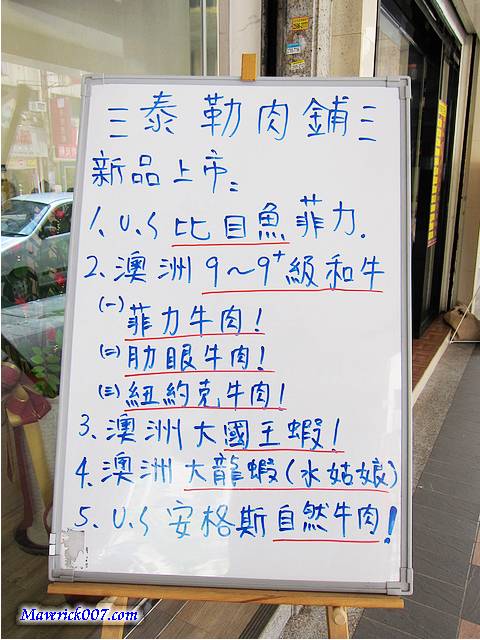 泰勒肉鋪
新品上市:
1. U.S 比目魚菲力.
2. 澳洲 9~9+級和牛
(一) 菲力牛肉!
(二) 肋眼牛肉!
(三) 紐約克牛肉!
3. 澳洲大國王蝦!
4. 澳洲大龍蝦(水姑娘)
5. U.S 安格斯自然牛肉!
Maverick007.com